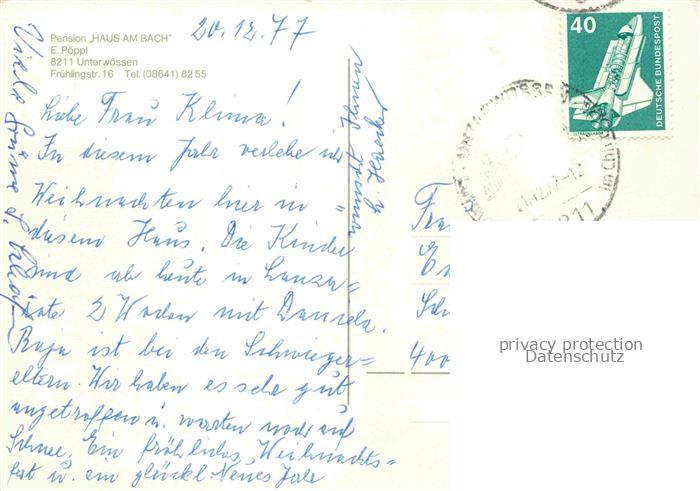 Pension „HAUS AM BACH"
E. Pöppl
8211 Unterwössen
Frühlingstr. 16 · Tel. (08641) 82 55
20.12.77
Liebe Frau Klima!
In diesem Jahr verlebe ich
Weihnachten hier in
diesem Haus. Die Kinder
sind ab heute in Lanza=
rote 2 Wochen mit Daniela.
Raja ist bei den Schwieger=
eltern. Wir haben es sehr gut
angetroffen u. warten noch auf
Schnee. Ein fröhliches Weihnachts-
fest u. ein glückl. Neues Jahr
wünscht Ihnen
h.
Viele Grüße
40
DEUTSCHE BUNDESPOST
8211
21.12.77-12
im
Frau
400
privacy protection
Datenschutz